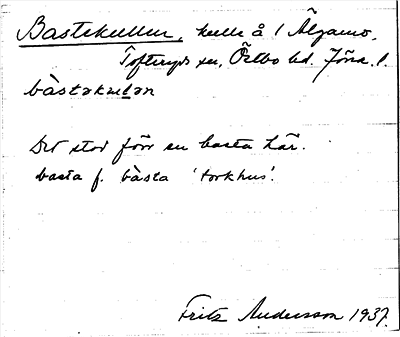 Bastekullen, kulle å 1 Älgamo,
Tofteryds sn, Östbo hd. Jönk. l.
bàstakulən
Det stod förr en basta här.
basta f. bàsta 'torkhus'.
Fritz Andersson 1937.